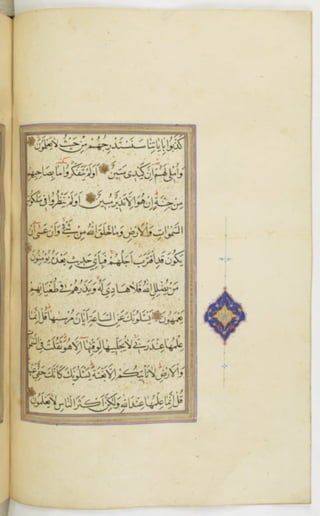 كذبوا باياتنا سنستدرجهم من حيث لا يعلمون
واملى لهم ان كيدى متين اولم يتفكروا ما بصاحبهم
من جنة ان هو الا نذير مبين اولم ينظروا فى ملكوت
السموات والارض وما خلق الله من شئ وان عسى ان
يكون قد اقترب اجلهم فباى حديث بعده يؤمنون
من يضلل الله فلا هادى له ويذرهم فى طغيانهم
يعمهون يسئلونك عن الساعة ايان مرسيها قل انما
علمها عند ربى لا يجليها لوقتها الا هو ثقلت فى السموات
والارض لا تاتيكم الا بغتة يسئلونك كانك حفى عنها
قل انما علمها عند الله ولكن اكثر الناس لا يعلمون